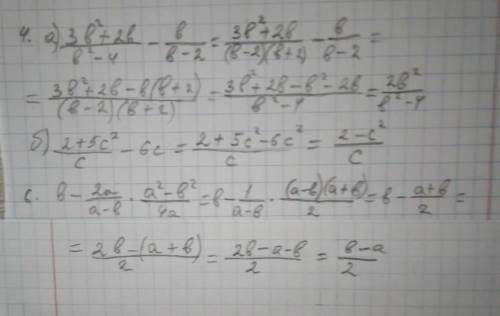 4. а) (3в²+2в)/(в²-4) - в/(в-2) = (3в²+2в)/((в-2)(в+2)) - в/(в-2) =
= (3в²+2в-в(в+2))/((в-2)(в+2)) = (3в²+2в-в²-2в)/(в²-4) = 2в²/(в²-4)
б) (2+5с²)/с - 6с = (2+5с²-6с²)/с = (2-с²)/с
с. в - 2а/(а-в) · (а²-в²)/4а = в - 1/(а-в) · ((а-в)(а+в))/2 = в - (а+в)/2 =
= (2в-(а+в))/2 = (2в-а-в)/2 = (в-а)/2